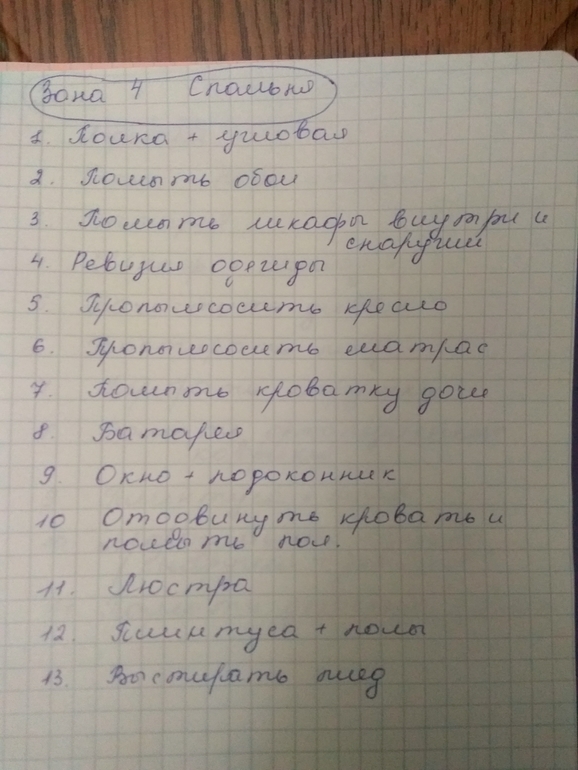 Зона 4 Спальня
1. Полка + угловая
2. Помыть обои
3. Помыть шкафы внутри и
снаружи
4. Ревизия одежды
5. Пропылесосить кресло
6. Пропылесосить матрас
7. Помыть кроватку дочи
8. Батарея
9. Окно + подоконник
10 Отодвинуть кровать и
помыть пол.
11. Люстра
12. Плинтуса + полы
13. Выстирать плед